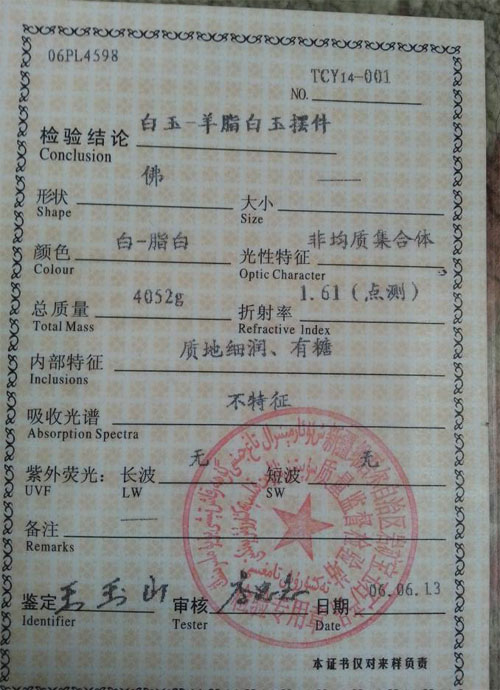 06PL4598
NO. TCY14-001
检验结论 白玉-羊脂白玉摆件
Conclusion
形状 佛 大小 —
Shape Size
颜色 白-脂白 光性特征 非均质集合体
Colour Optic Character
总质量 4052g 折射率 1.61(点测)
Total Mass Refractive Index
内部特征 质地细润、有糖
Inclusions
吸收光谱 不特征
Absorption Spectra
紫外荧光: 长波 无 短波 无
UVF LW SW
备注 —
Remarks
鉴定 审核 日期 06.06.13
Identifier Tester Date
本证书仅对来样负责